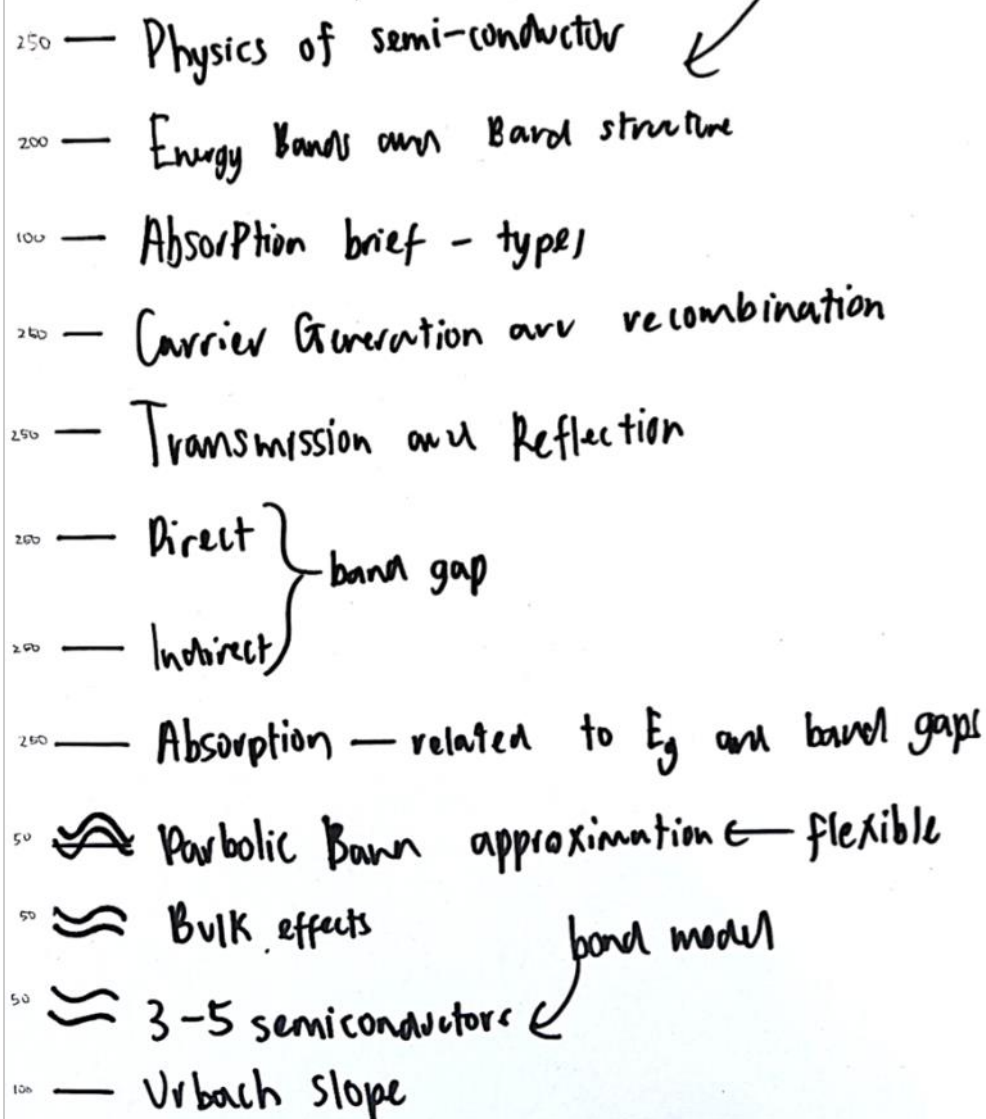 250 — Physics of semi-conductor
200 — Energy Bands and Band structure
100 — Absorption brief - types
250 — Carrier Generation and recombination
250 — Transmission and Reflection
200 — Direct
band gap
200 — Indirect
250 — Absorption — related to Eg and band gaps
50 Parbolic Band approximation ← flexible
50 Bulk effects
bond model
50 3-5 semiconductors
100 — Urbach slope